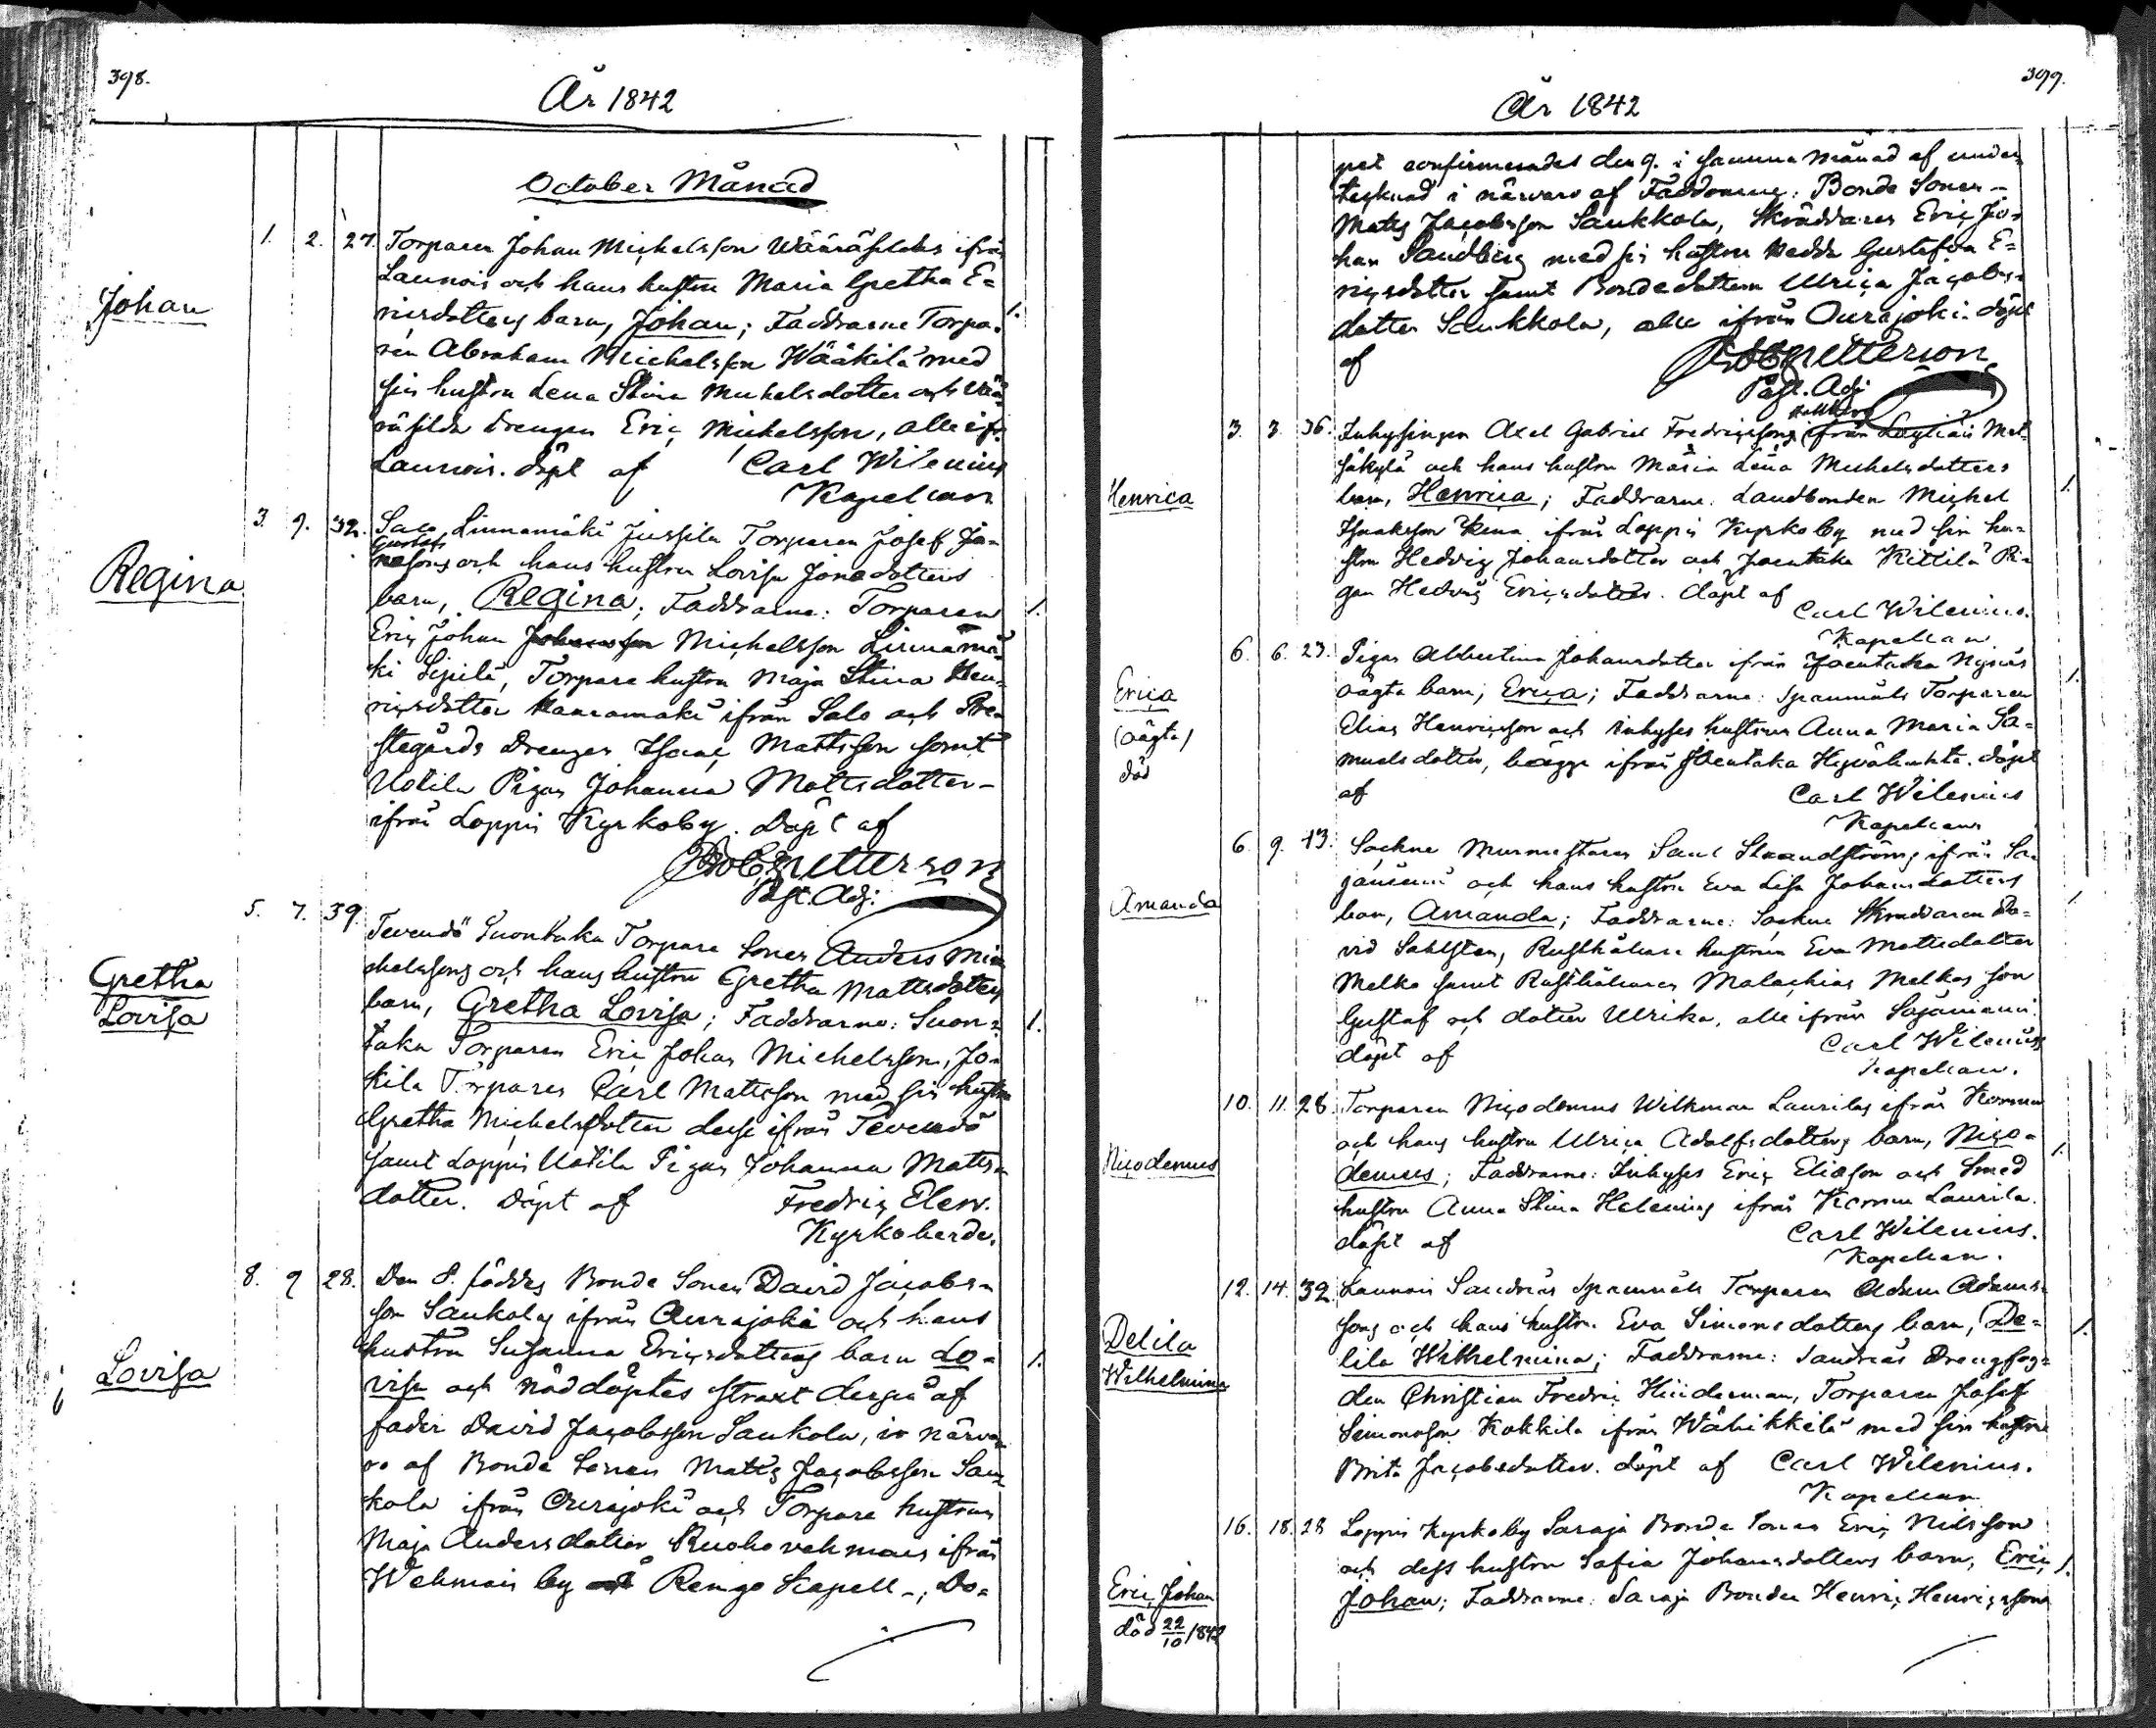 398.
År 1842
October Månad
Johan
1. 2. 27. Torparen Johan Michelsson Wääräsildes ifrån
Launois och hans hustru Maria Gretha E=
ricsdotters barn, Johan; Faddrarne Torpa- 1.
ren Abraham Michelsson Wääkilä med
sin hustru Lena Stina Michelsdotter och Wää-
räsilda drengen Eric Michelsson, alle ifr.
Launois. döpt af Carl Wilenius
Kapellan
Regina
3. 9. 32. Salo Linnamäki Jussila Torparen Josef
Gustafs
sons och hans hustru Lovisa Jonædotters
barn, Regina; Faddrarne: Torparen 1.
Eric Johan Michelsson Linnamä-
ki Sipilä, Torpare hustru Maja Stina Hen-
ricsdotter ifrån Salo och Pre-
stegårds Drengen Isaac Mattsson samt
Uotila Pigan Johanna Mattsdotter
ifrån Loppis Kyrkoby. Döpt af
Petterson
Past. Adj.
Gretha
Lovisa
5. 7. 39. Tevendö Suontaka Torpare Sonen Anders Mi-
chelssons och hans hustru Gretha Mattsdotters
barn, Gretha Lovisa; Faddrarne: Suon- 1.
taka Torparen Eric Johan Michelsson, Jo-
kila Torparen Carl Mattsson med sin hustru
Gretha Michelsdotter desse ifrån Tevendö
samt Loppis Uotila Pigan Johanna Matts-
dotter. Döpt af Fredric Elerv.
Kyrkoherde.
Lovisa
8. 9 28. Den 8. föddes Bonde Sonen David Jacobs-
son Saukolas ifrån Ourajoki och hans
hustru Susanna Ericsdotters barn Lo- 1.
visa och nöddöptes straxt derpå af
fader David Jacobsson Saukola, i närva-
ro af Bonde Sonen Matts Jacobsson Sau-
kola ifrån Ourajoki och Torpare hustrun
Maja Andersdotter Ruohovehmais ifrån
Wehmais by Rengo Kapell-; Do-
399.
År 1842
pet confirmerades den 9. i samma månad af under-
tecknad i närvaro af Faddrarne: Bonde Sonen
Matts Jacobsson Saukkola, Skräddaren Eric Jo-
han Sandberg med sin hustru Hedda Gustafva E=
ricsdotter samt Bondedottern Ulrica Jacobs-
dotter Saukkola, alle ifrån Ourajoki. döpt
af Petterson
Past. Adj.
Henrica
3. 3. 36. Inhysingen Axel Gabriel Fredricssons ifrån Läyliäis Met-
säkylä och hans hustru Maria Lena Michelsdotters
barn, Henrica; Faddrarne: Landbonden Michel 1.
Isaaksson ifrån Loppis Kyrkoby med sin hu-
stru Hedvig Johansdotter och Joentaka Kittilä Pi-
gan Hedvig Ericsdotter. döpt af Carl Wilenius.
Kapellan
Erica
(oägta)
död
6. 6. 23. Pigan Albertina Johansdotter ifrån Joentaka
oägta barn; Erica; Faddrarne: Spanmåls Torparen 1.
Elias Henricsson och Inhyses hustrun Anna Maria Sa=
muelsdotter, bägge ifrån Joentaka. döpt
af Carl Wilenius
Kapellan
Amanda
6. 9. 43. Sockne Murmästaren Saul Strandströms ifrån Sa-
jäniemi och hans hustru Eva Lisa Johansdotters
barn, Amanda; Faddrarne: Sockne Skräddaren Da= 1
vid Sahlsten, Rusthållare hustrun Eva Mattsdotter
Melka samt Rusthållaren Malachias Melkas son
Gustaf och dotter Ulrika, alle ifrån Sajäniemi.
döpt af Carl Wilenius
Kapellan.
Nicodemus
10. 11. 28. Torparen Nicodemus Wilkman Laurilas ifrån Kormu
och hans hustru Ulrica Adolfsdotters barn, Nico- 1.
demus; Faddrarne: Inhyses Eric Eliasson och Smed
hustru Anna Stina Helenius ifrån Kormu Laurila.
döpt af Carl Wilenius.
Kapellan.
Delila
Wilhelmina
12. 14. 32. Launois Sandnäs Spanmåls Torparen Adam Adams-
sons och hans hustru Eva Simonsdotters barn, De= 1.
lila Wilhelmina; Faddrarne: Sandnäs Drengfog=
den Christian Fredric Hinderman, Torparen Josef
Simonsson Kokkila ifrån Wähikkälä med sin hustru
Brita Jacobsdotter. döpt af Carl Wilenius.
Kapellan
Eric Johan
död 22/10 1842
16. 18. 28 Loppis Kyrkoby Saraja Bonde Sonen Eric Nilsson
och dess hustru Sofia Johansdotters barn, Eric 1.
Johan; Faddrarne: Saraja Bonden Henric Henricsson